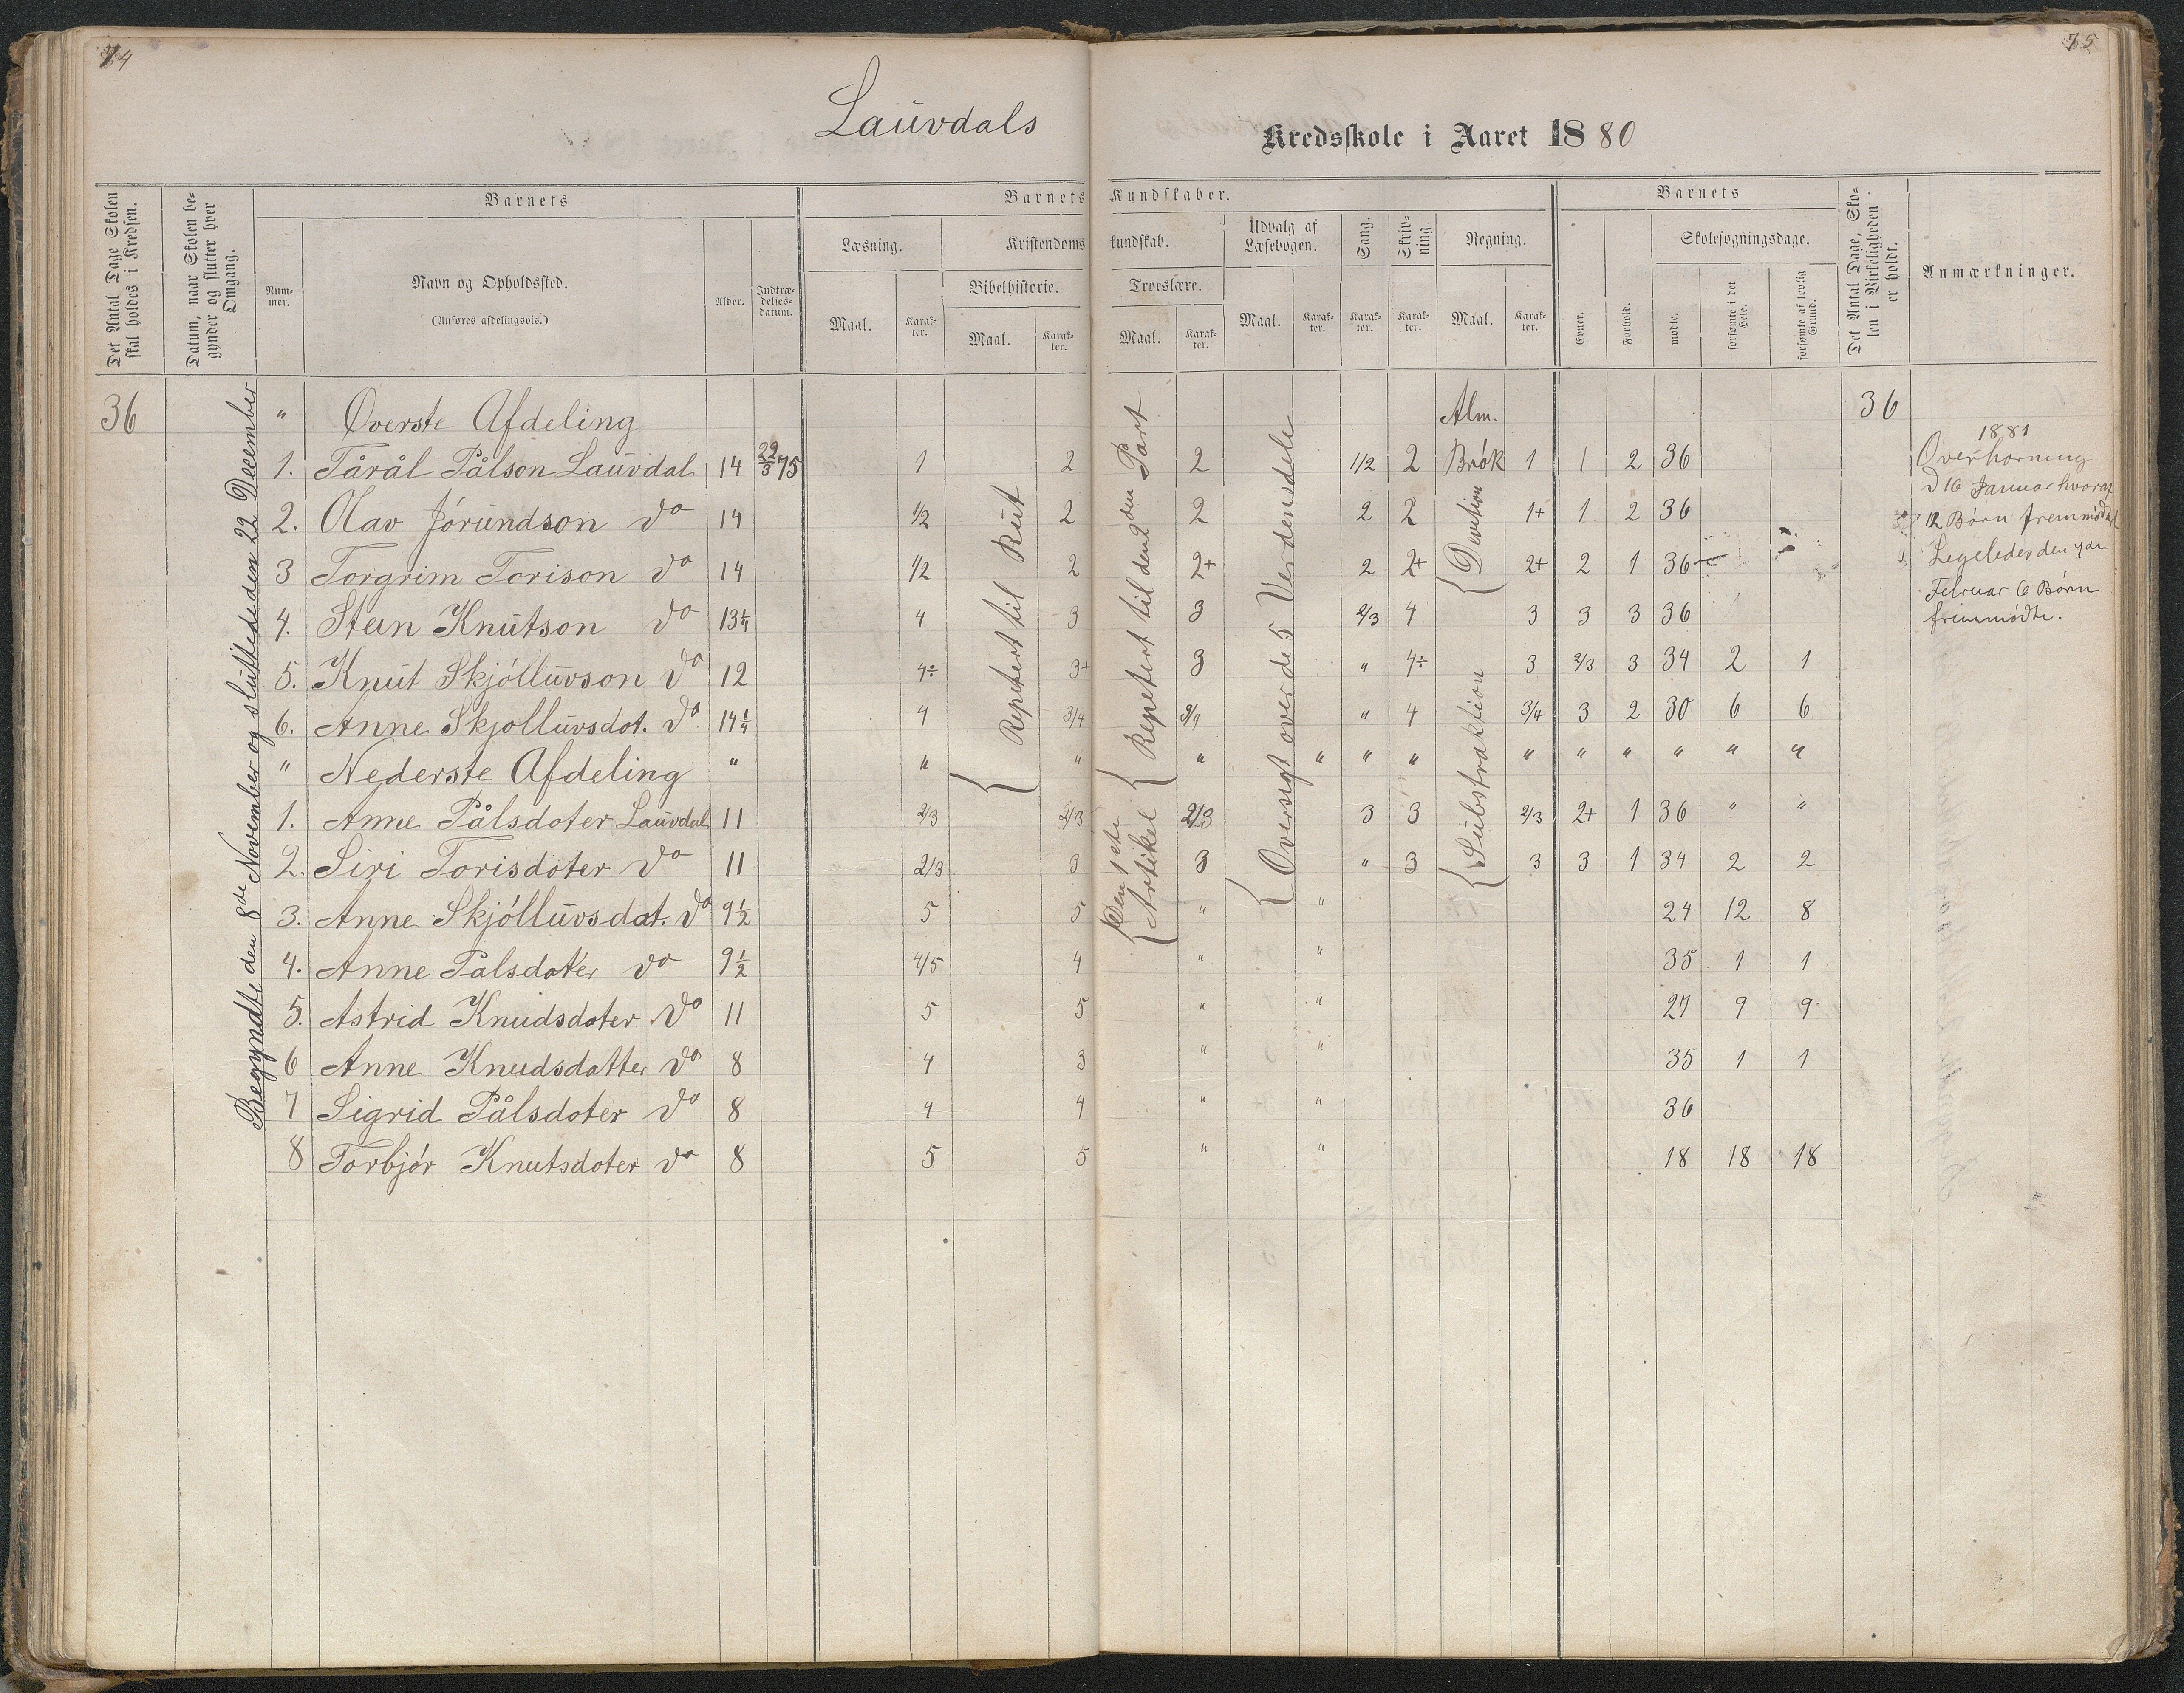 74
75
Lauvdals
Kredsskole i Aaret 1880
Det Antal Dage Skolen skal holdes i Kredsen.
Datum, naar Skolen begynder og slutter hver Omgang.
Barnets
Barnets Kundskaber.
Barnets
Det Antal Dage, Skolen i Virkeligheden er holdt.
Anmærkninger.
Nummer.
Navn og Opholdssted.
(Anføres afdelingsvis.)
Alder.
Indtrædelsesdatum.
Læsning.
Kristendomskundskab.
Udvalg af Læsebogen.
Sang.
Skrivning.
Regning.
Evner.
Forhold.
Skolesøgningsdage.
Bibelhistorie.
Troeslære.
Maal. Karakter. Maal. Karakter. Maal. Karakter. Maal. Karakter. Karakter. Karakter. Maal. Karakter.
mødte.
forsømte i det Hele.
forsømte af lovlig Grund.
Begyndte den 8de November og sluttede den 22 December
Repetert til Rut
Repetert til den 2den Part
Den 1ste Artikel
Oversigt over de 5 Verdensdele
Alm. Brøk
Devition
Substraktion
36 " Øverste Afdeling 36
1. Tårål Pålson Lauvdal 14 22/3 75 1 2 2 1/2 2 1 1 2 36
2. Olav Jórundson do 14 1/2 2 2 2 2 1+ 1 2 36
3 Torgrim Torison do 14 1/2 2 2+ 2 2+ 2+ 2 1 36
4. Stein Knutson do 13 1/4 4 3 3 2/3 4 3 3 3 36
5. Knut Skjólluvson do 12 4÷ 3+ 3 " 4÷ 3 2/3 3 34 2 1
6. Anne Skjolluvsdot. do 14 1/4 4 3/4 3/4 " 4 3/4 3 2 30 6 6
" Nederste Afdeling " " " " " " " " " " " " "
1. Anne Pålsdoter Lauvdal 11 2/3 2/3 2/3 3 3 2/3 2+ 1 36 " "
2. Siri Torisdoter do 11 2/3 3 3 " 3 3 3 1 34 2 2
3. Anne Skjólluvsdat. do 9 1/2 5 5 " " 24 12 8
4. Anne Palsdoter do 9 1/2 4/5 4 " " 35 1 1
5. Astrid Knudsdoter do 11 5 5 " " 27 9 9
6 Anne Knudsdatter do 8 4 3 " " 35 1 1
7 Sigrid Pålsdoter do 8 4 4 " " 36
8 Torbjór Knutsdoter do 8 5 5 " " 18 18 18
1881
Overhørning
d 16 Januar hvoraf
12 Børn fremmødte
Legeledes den
Februar 6 Børn
fremmødte.